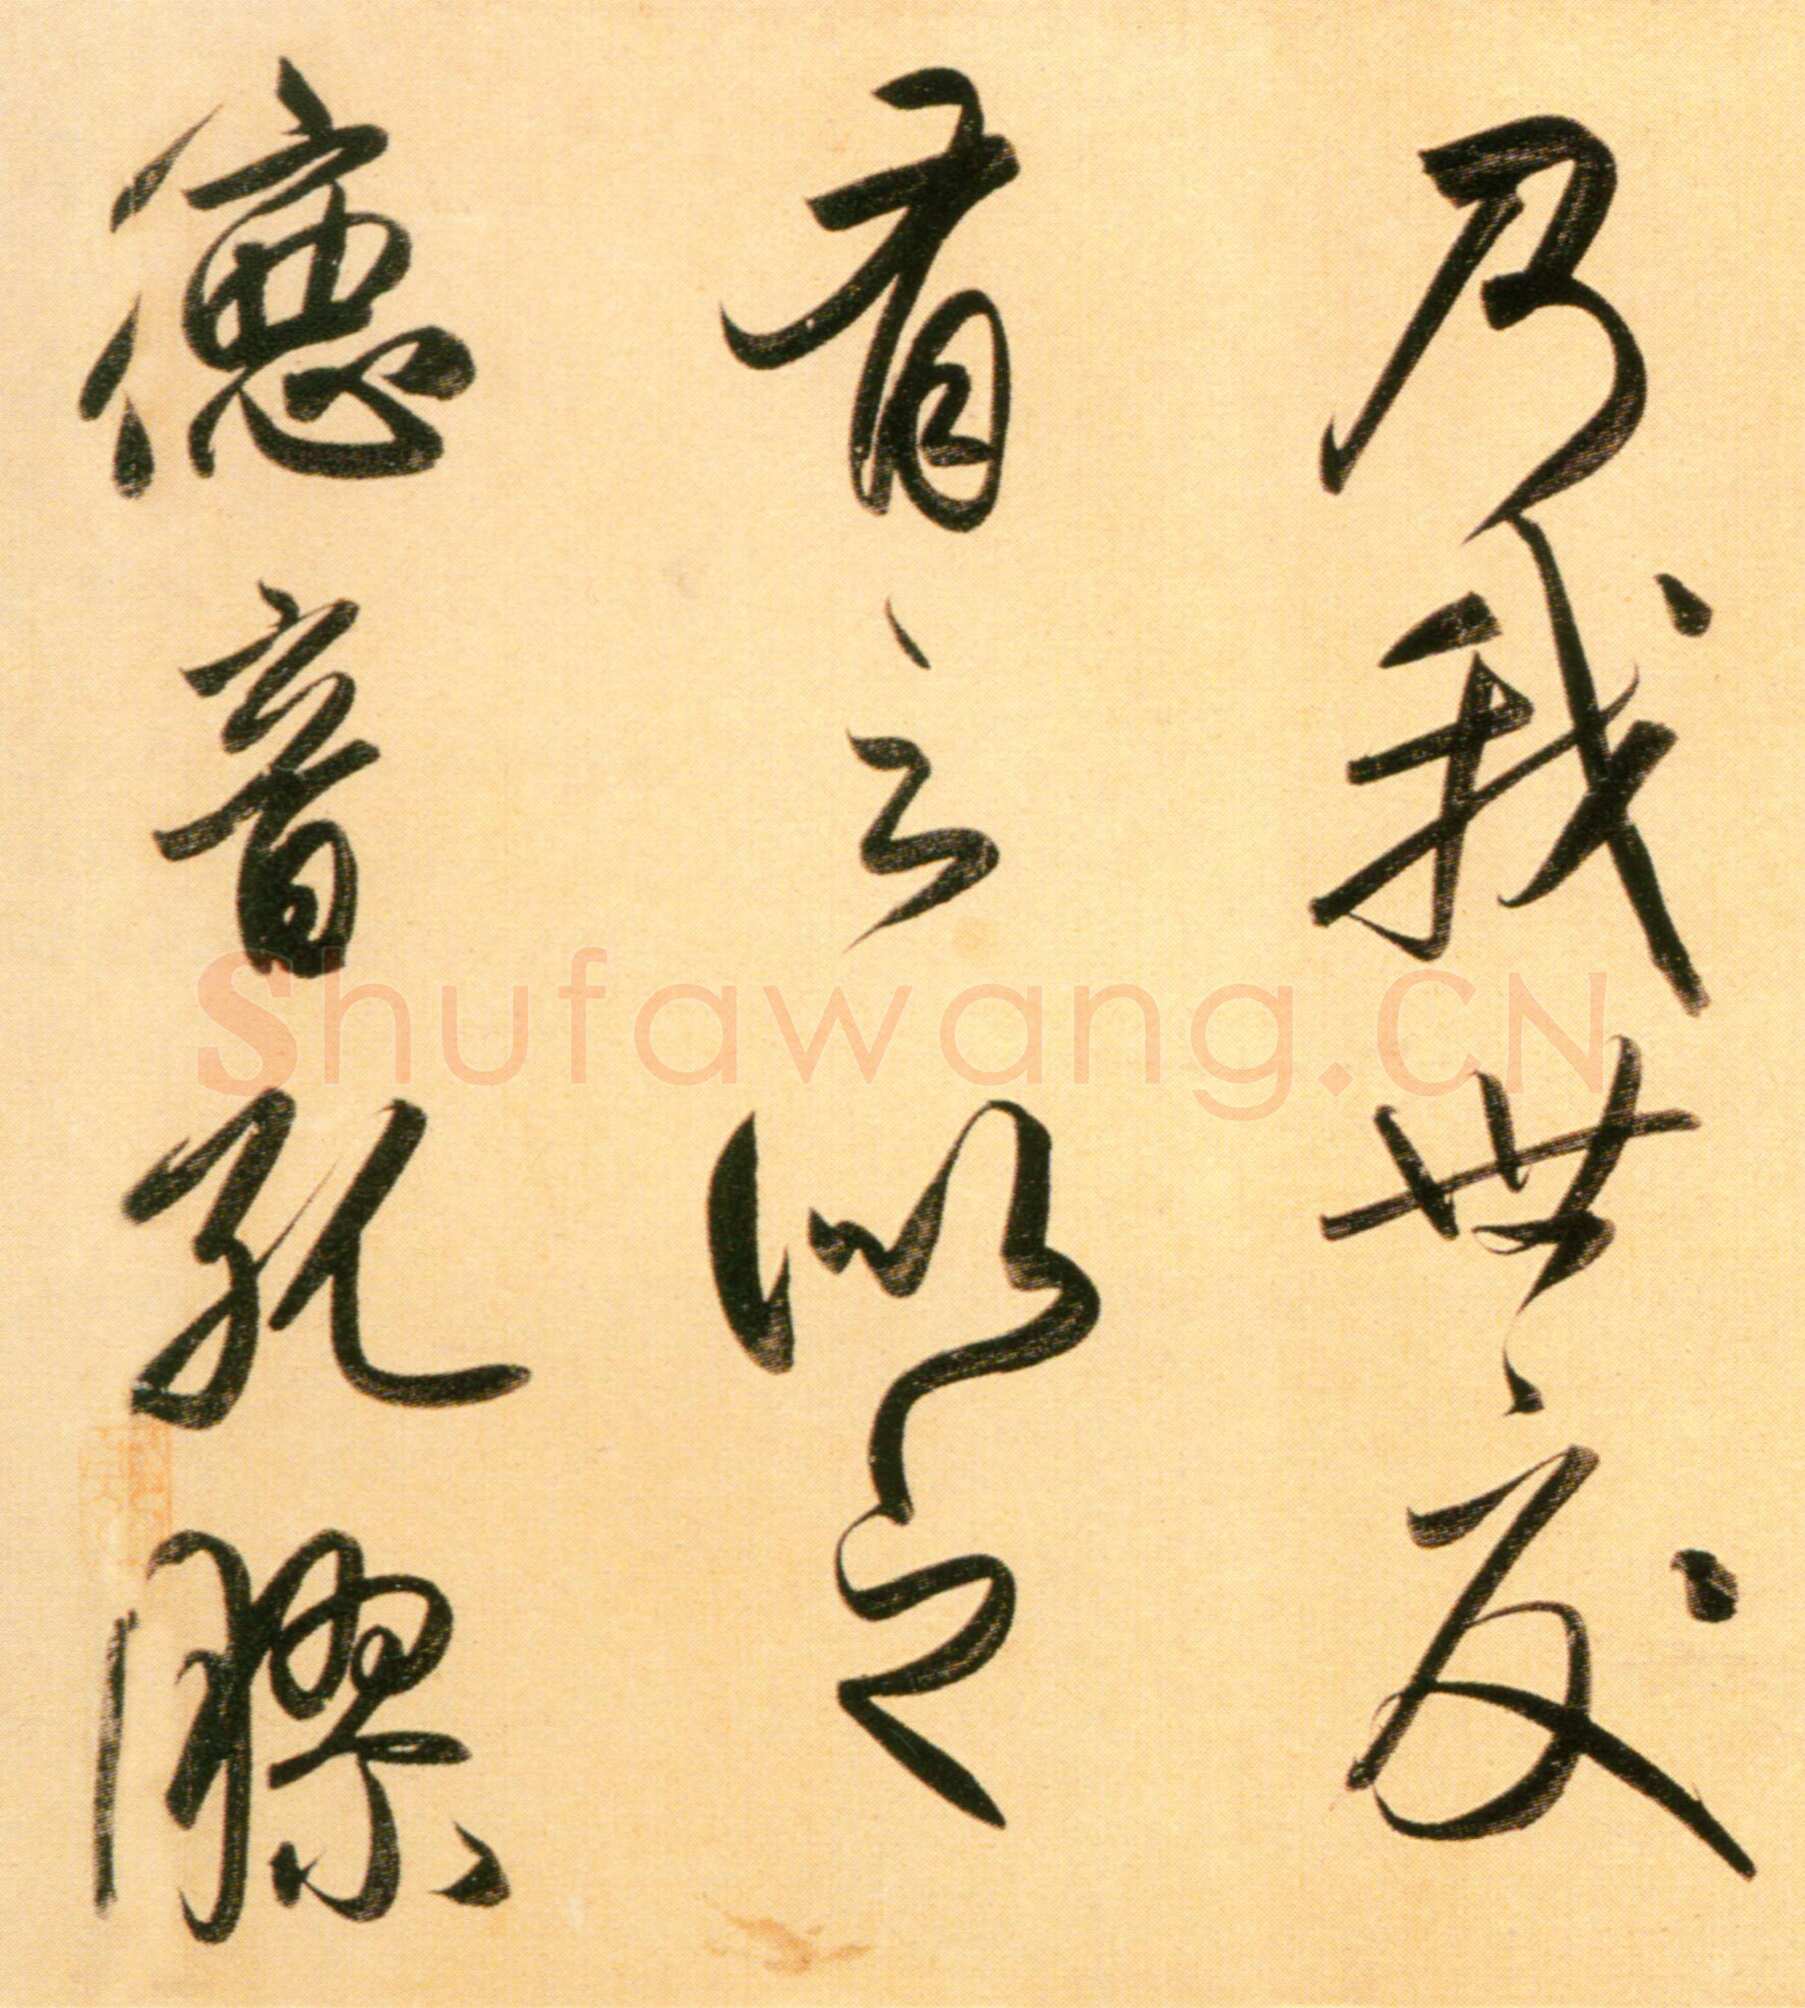 乃我世友
之似之
德音孔膠
Shufawang.CN